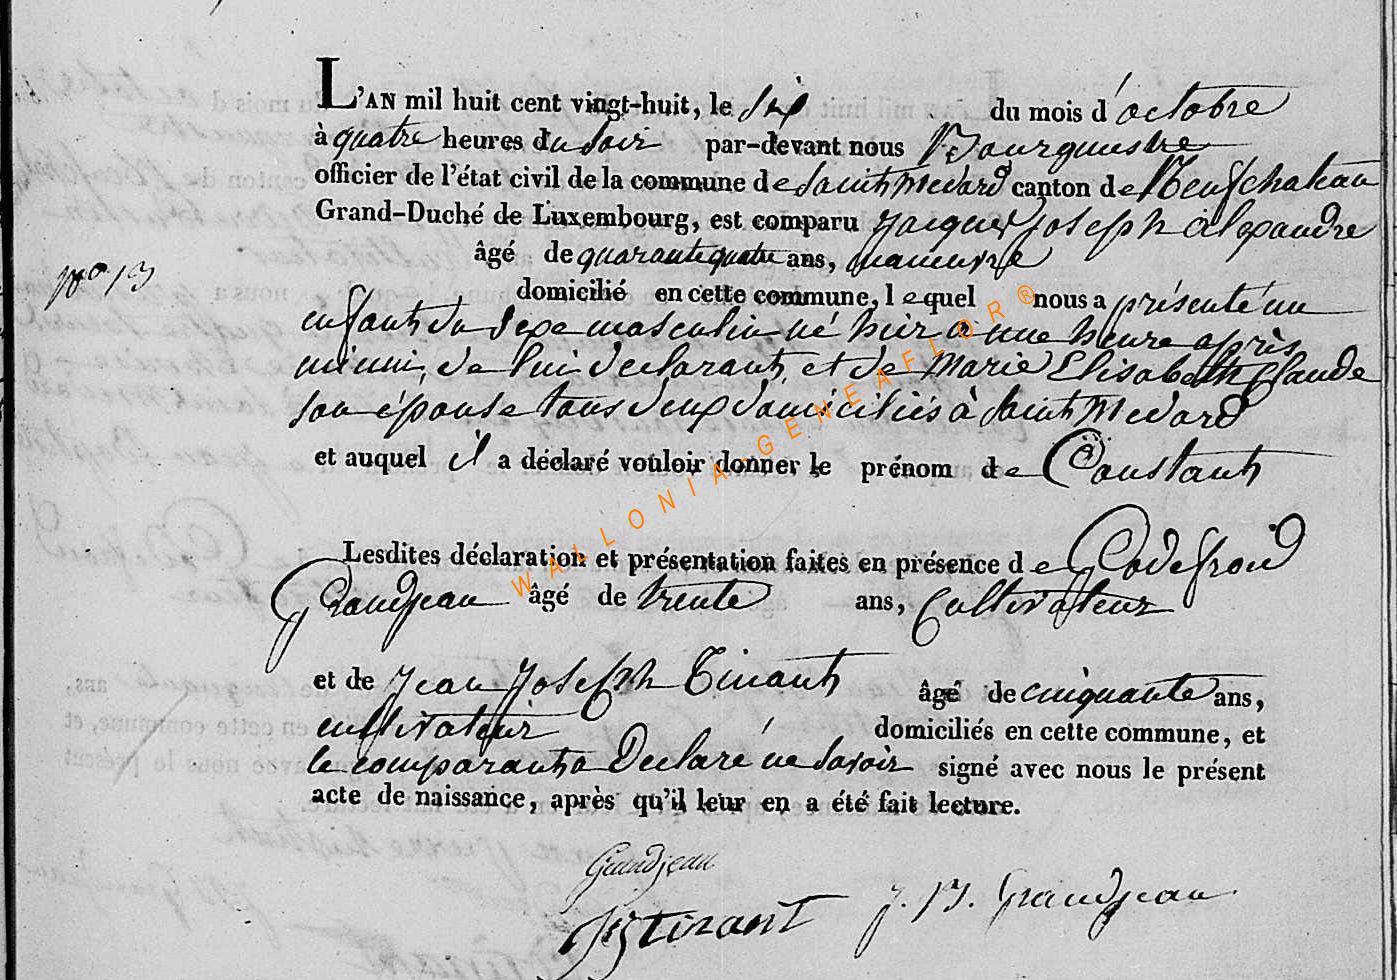 L'AN mil huit cent vingt-huit, le six du mois d'octobre
à quatre heures du soir par-devant nous Bourguestre
officier de l'état civil de la commune de Saint Medard canton de Neufchateau
Grand-Duché de Luxembourg, est comparu Jacques Joseph Alexandre
âgé de quarante quatre ans, maneuvre
N° 13
domicilié en cette commune, lequel nous a présenté un
enfant du sexe masculin né hier a une heure après
minui, de lui declarant, et de Marie Elisabeth Claude
son épouse tous deux domiciliés à Saint Medard
et auquel il a déclaré vouloir donner le prénom de Constant
Lesdites déclaration et présentation faites en présence de Godefroid
Grandjean âgé de trente ans, cultivateur
et de Jean Joseph Tinant âgé de cinquante ans,
cultivateur domiciliés en cette commune, et
le comparant a Declaré ne savoir signé avec nous le présent
acte de naissance, après qu'il leur en a été fait lecture.
Grandjean
JJ Tinant J. B. Grandjean
WALLONIA-GENEAFLOR ®